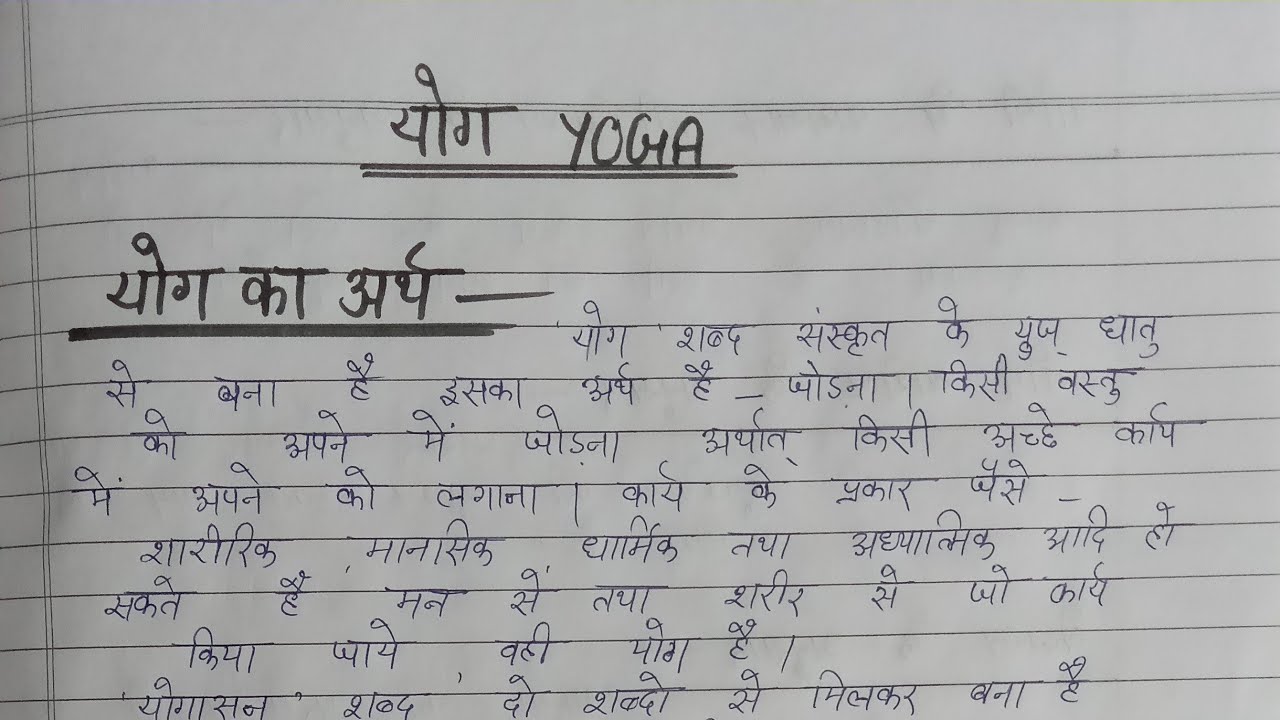 योग YOGA
योग का अर्थ —
'योग' शब्द संस्कृत के युज् धातु
से बना है इसका अर्थ है – जोड़ना। किसी वस्तु
को अपने में जोड़ना अर्थात् किसी अच्छे कार्य
में अपने को लगाना। कार्य के प्रकार जैसे –
शारीरिक, मानसिक धार्मिक तथा अध्यात्मिक आदि हो
सकते हैं मन से तथा शरीर से जो कार्य
किया जाये वही योग है।
'योगासन' शब्द दो शब्दो से मिलकर बना है